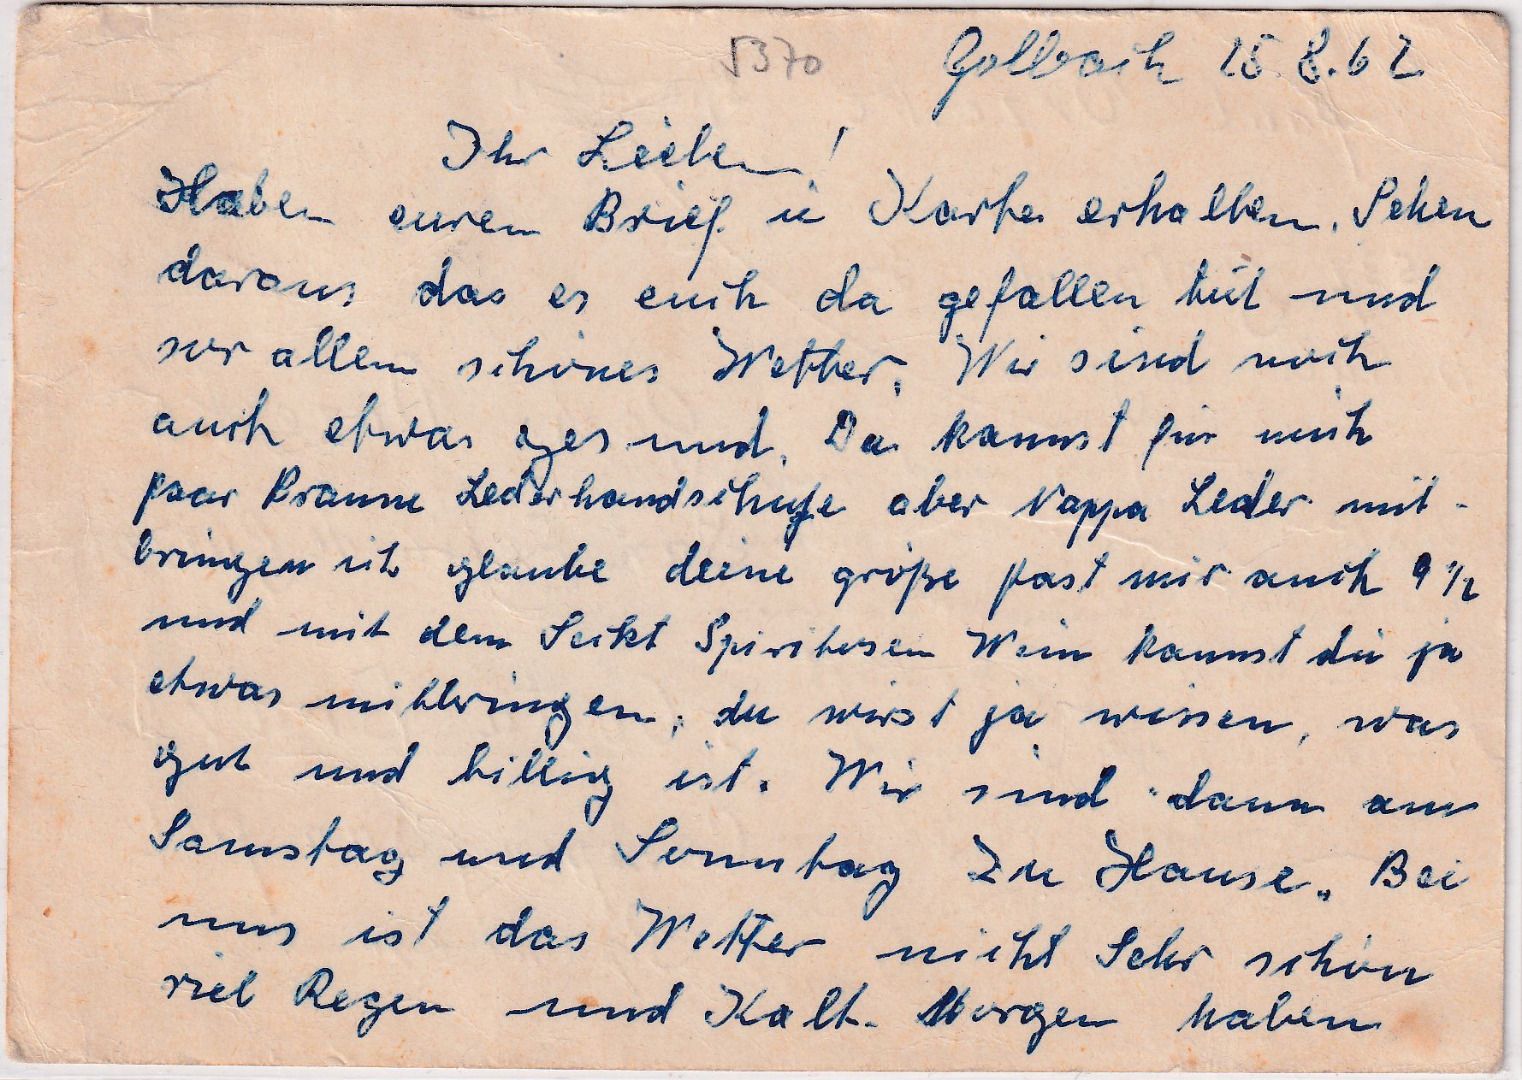 5370
Gollbach 25.8.62
Ihr Lieben!
Haben euren Brief u Karte erhalten. Sehen
daraus das es euch da gefallen tut und
vor allem schönes Wetter. Wir sind noch
auch etwas gesund. Du kannst für mich
paar Braune Lederhandschuhe aber Nappa Leder mit-
bringen ich glaube deine größe past mir auch 9 1/2
und mit dem Seikt Spirituosen Wein kannst du ja
etwas mitbringen, du wirst ja wissen, was
gut und billig ist. Wir sind dann am
Samstag und Sonntag Zu Hause. Bei
uns ist das Wetter nicht Sehr schön
viel Regen und Kalt. Morgen haben